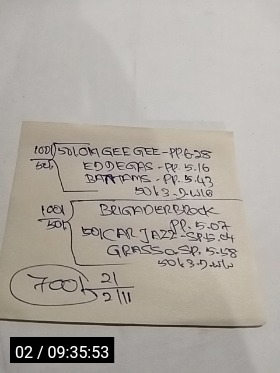 100/ 50/ OM GEE GEE - PP 6.28
50/- EDDEGAS - PP. 5.16
BANTAMS - PP. 5.43
50/- 3.D.W/W
100/ BRIGADERBROCK
50/- PP. 5.07
50/ CAR JAZZ - SP. 5.04
GRASSO - SP. 5.58
50/- 3.D.W/W
700/- 21/
2/11
02 / 09:35:53